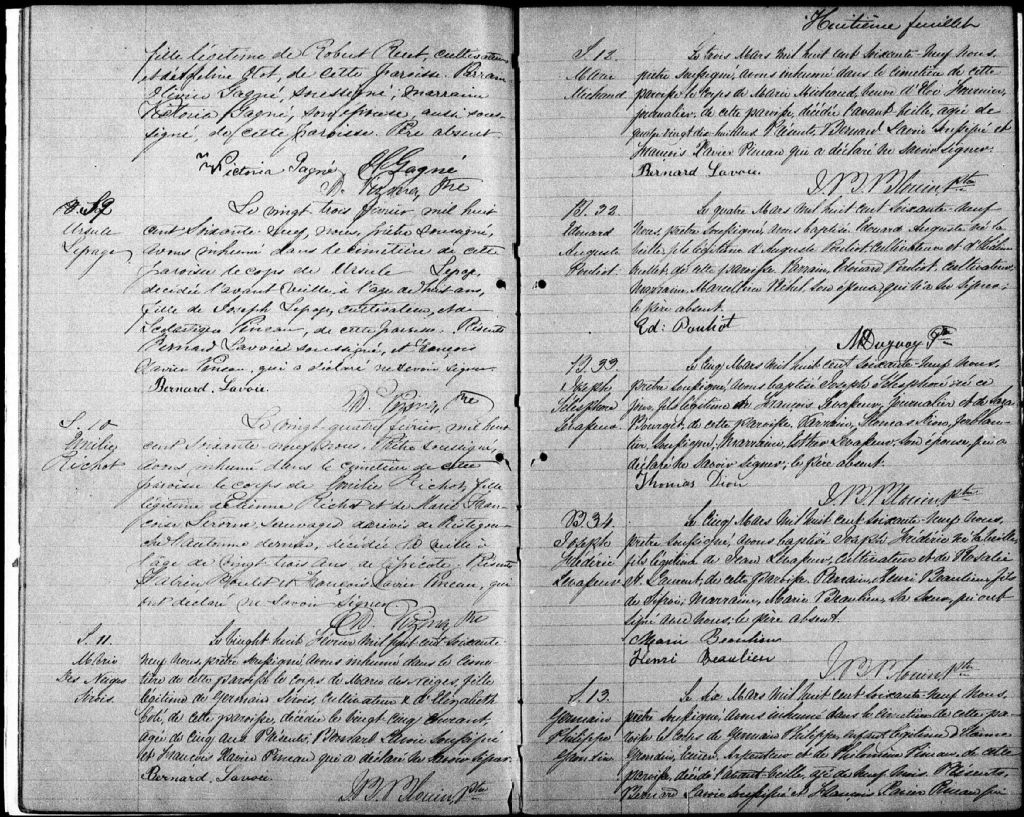 fille légitime de Robert Ruest, cultivateur
et de Céline Côté, de cette paroisse. Parrain
Gagné, soussigné, marraine
Victoria Gagné, son épouse, aussi sous-
signé, de cette paroisse. Père absent
Victoria Gagné, Gagné
Ptre
S. 9
Ursule
Lepage
Le vingt trois février, mil huit
cent soixante neuf, nous, prêtre soussigné,
avons inhumé dans le cimetière de cette
paroisse le corps de Ursule Lepage,
décédée l'avant veille, à l'âge de huit ans,
fille de Joseph Lepage, cultivateur, et de
Scolastique Pineau, de cette paroisse. Présents
Bernard Lavoie soussigné, et François
Xavier Pineau, qui a déclaré ne savoir signer
Bernard Lavoie.
Ptre
S. 10
Emilie
Richot
Le vingt quatre février, mil huit
cent soixante neuf, nous, Prêtre soussigné,
avons inhumé dans le cimetière de cette
paroisse le corps de Emilie Richot, fille
légitime de Etienne Richot et de Marie Fran-
çoise Jerome, Sauvages arrivés de Ristigou-
che l'automne dernier, décédée la veille à
l'âge de vingt trois ans de la picote. Présents
Boulet et François Xavier Pineau, qui
ont déclaré ne savoir signer
Ptre
S. 11
Marie
Des Neiges
Sirois.
Le vingt huit Février mil huit cent soixante-
neuf nous, prêtre soussigné, avons inhumé dans le cime-
tière de cette paroisse le corps de Marie des Neiges, fille
légitime de Germain Sirois, cultivateur & d'Elizabeth
Coté, de cette paroisse, décédée le vingt-cinq courant,
agée de cinq ans Présents, Bernard Lavoie soussigné
et François Xavier Pineau qui a déclaré ne savoir signer
Bernard Lavoie.
J. B. Blouin Ptre
Huitième feuillet
S. 12.
Marie
Michaud
Le trois Mars mil huit cent soixante-neuf nous,
prêtre soussigné, avons inhumé dans le cimetière de cette
paroisse le corps de Marie Michaud, veuve d'Eloi Fournier,
journalier, de cette paroisse, décédée l'avant veille, agée de
quatre vingt dix-huit ans Présents, Bernard Lavoie soussigné et
François Xavier Pineau qui a déclaré ne savoir signer.
Bernard Lavoie.
J. B. Blouin ptre
B. 32.
Edouard
Auguste
Pouliot
Le quatre Mars mil huit cent soixante-neuf
nous prêtre soussigné, avons baptisé Edouard Auguste né la
veille, fils légitime d'Auguste Pouliot cultivateur et
de cette paroisse. Parrain, Edouard Pouliot cultivateur,
marraine, Marcelline son épouse, qui n'a su signer;
le père absent.
Ed: Pouliot
Duguay Ptre
B. 33
Joseph
Télesphore
Levasseur
Le cinq Mars mil huit cent soixante-neuf nous,
prêtre soussigné, avons baptisé Joseph Télesphore né ce
jour, fils légitime de François Levasseur, Journalier et de
Bourget, de cette paroisse. Parrain, Thomas Dion,
soussigné; Marraine, Esther Levasseur, son épouse, qui a
déclaré ne savoir signer, le père absent.
Thomas Dion
J. B. Blouin ptre
B. 34.
Joseph
Médéric
Levasseur
Le cinq Mars mil huit cent soixante-neuf nous,
prêtre soussigné, avons baptisé Joseph Médéric né la veille,
fils légitime de Jean Levasseur, cultivateur et de Rosalie
St Laurent, de cette paroisse. Parrain, Henri Beaulieu, fils
de Marraine, Marie Beaulieu, sa sœur, qui ont
signé avec nous; le père absent.
Marie Beaulieu
Henri Beaulieu
J. B. Blouin ptre
S. 13.
Germain
Philippe
Gendron
Le six Mars mil huit cent soixante neuf nous,
prêtre soussigné, avons inhumé dans le cimetière de cette pa-
roisse le corps de Germain Philippe, enfant légitime
Gendron, Arpenteur et de Philomène Pineau, de cette
paroisse, décédé l'avant-veille, agé de neuf mois Présents,
Bernard Lavoie soussigné et François Xavier Pineau qui